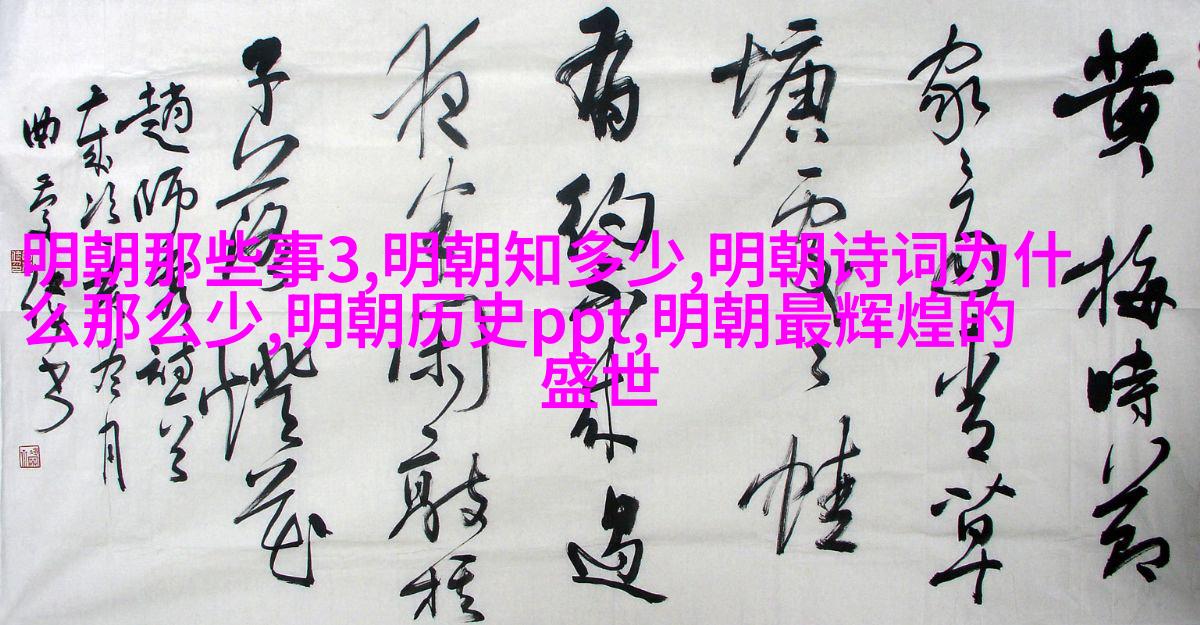 明朝那些事3,明朝知多少,明朝诗词为什
么那么少,明朝历史ppt,明朝最辉煌的
盛世
黄梅時節
家々雨青草
塘處々蛙
有約不来過
夜半闲敲棋
子落燈花
趙師秀